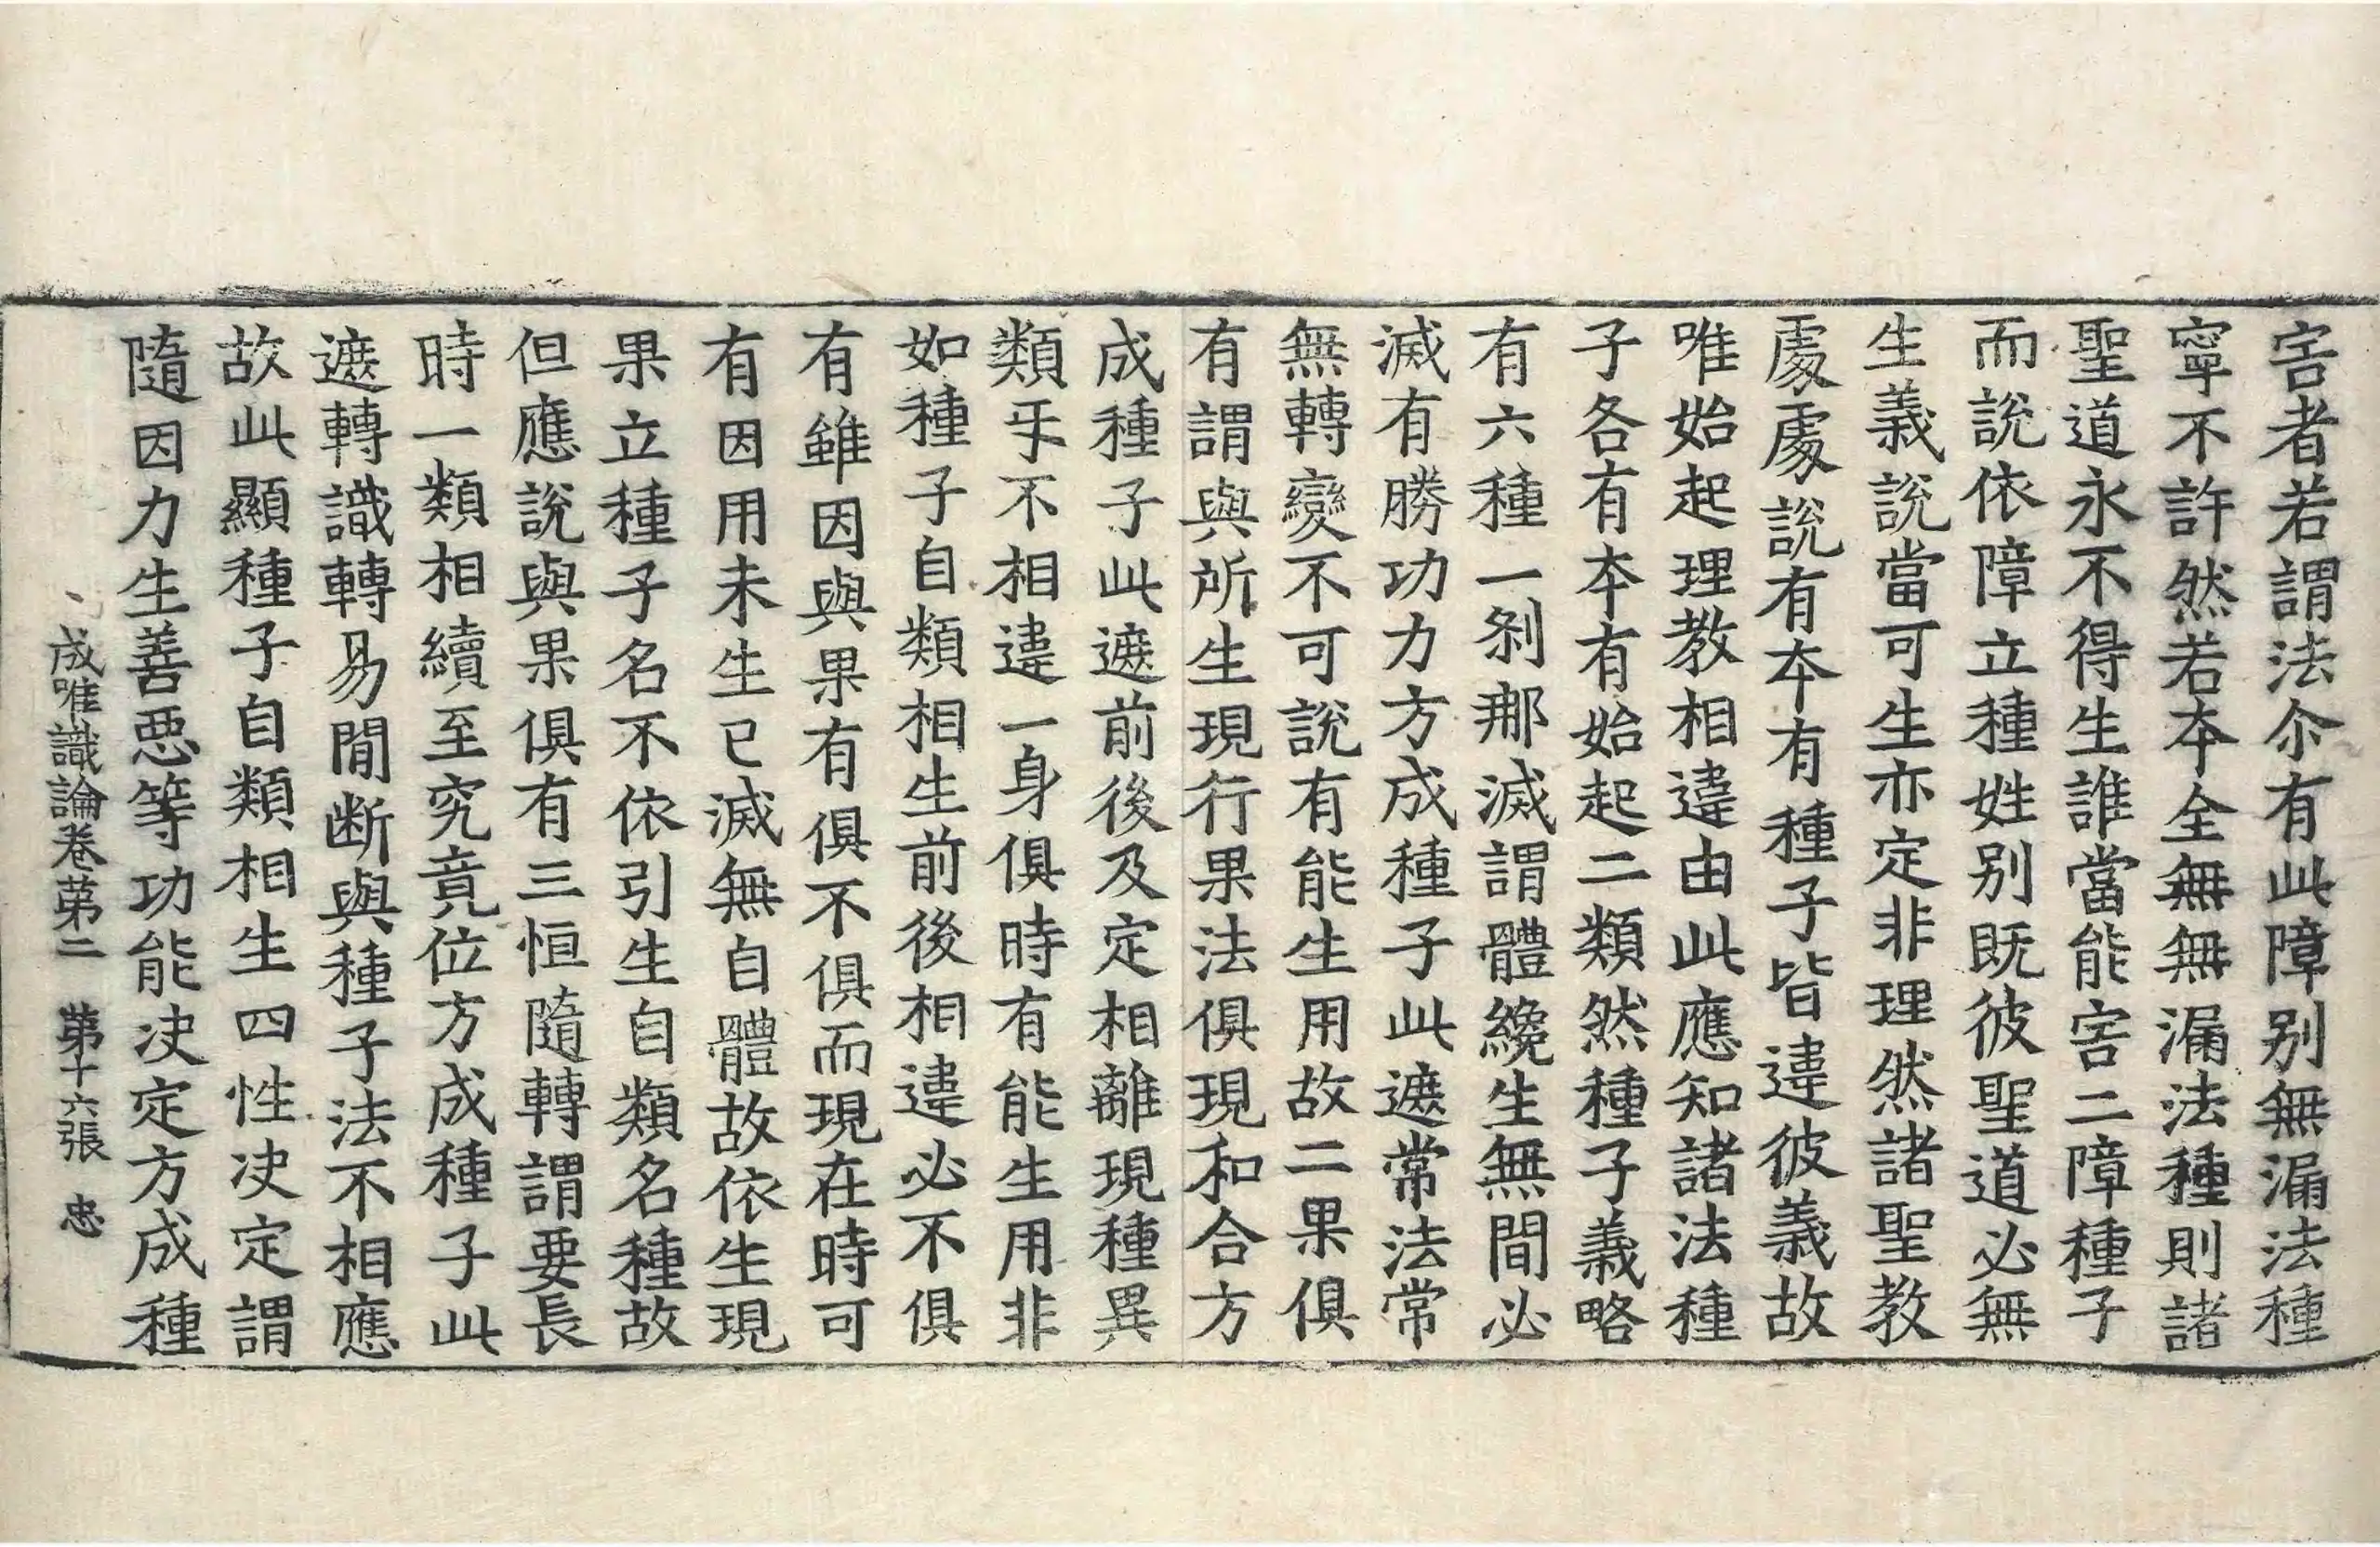 害者若謂法尒有此障別無漏法種
寧不許然若夲全無無漏法種則諸
聖道永不得生誰當能害二障種子
而說依障立種姓別既彼聖道必無
生義說當可生亦定非理然諸聖教
處處說有夲有種子皆違彼義故
唯始起理教相違由此應知諸法種
子各有夲有始起二類然種子義略
有六種一刹那滅謂體纔生無間必
滅有勝功力方成種子此遮常法常
無轉變不可說有能生用故二果俱
有謂與所生現行果法俱現和合方
成種子此遮前後及定相離現種異
類㸦不相違一身俱時有能生用非
如種子自類相生前後相違必不俱
有雖因與果有俱不俱而現在時可
有因用未生已滅無自體故依生現
果立種子名不依引生自類名種故
但應說與果俱有三恒隨轉謂要長
時一類相續至究竟位方成種子此
遮轉識轉易閒断與種子法不相應
故此顯種子自類相生四性决定謂
隨因力生善惡等功能决定方成種
成唯識論卷苐二 苐十六張 忠